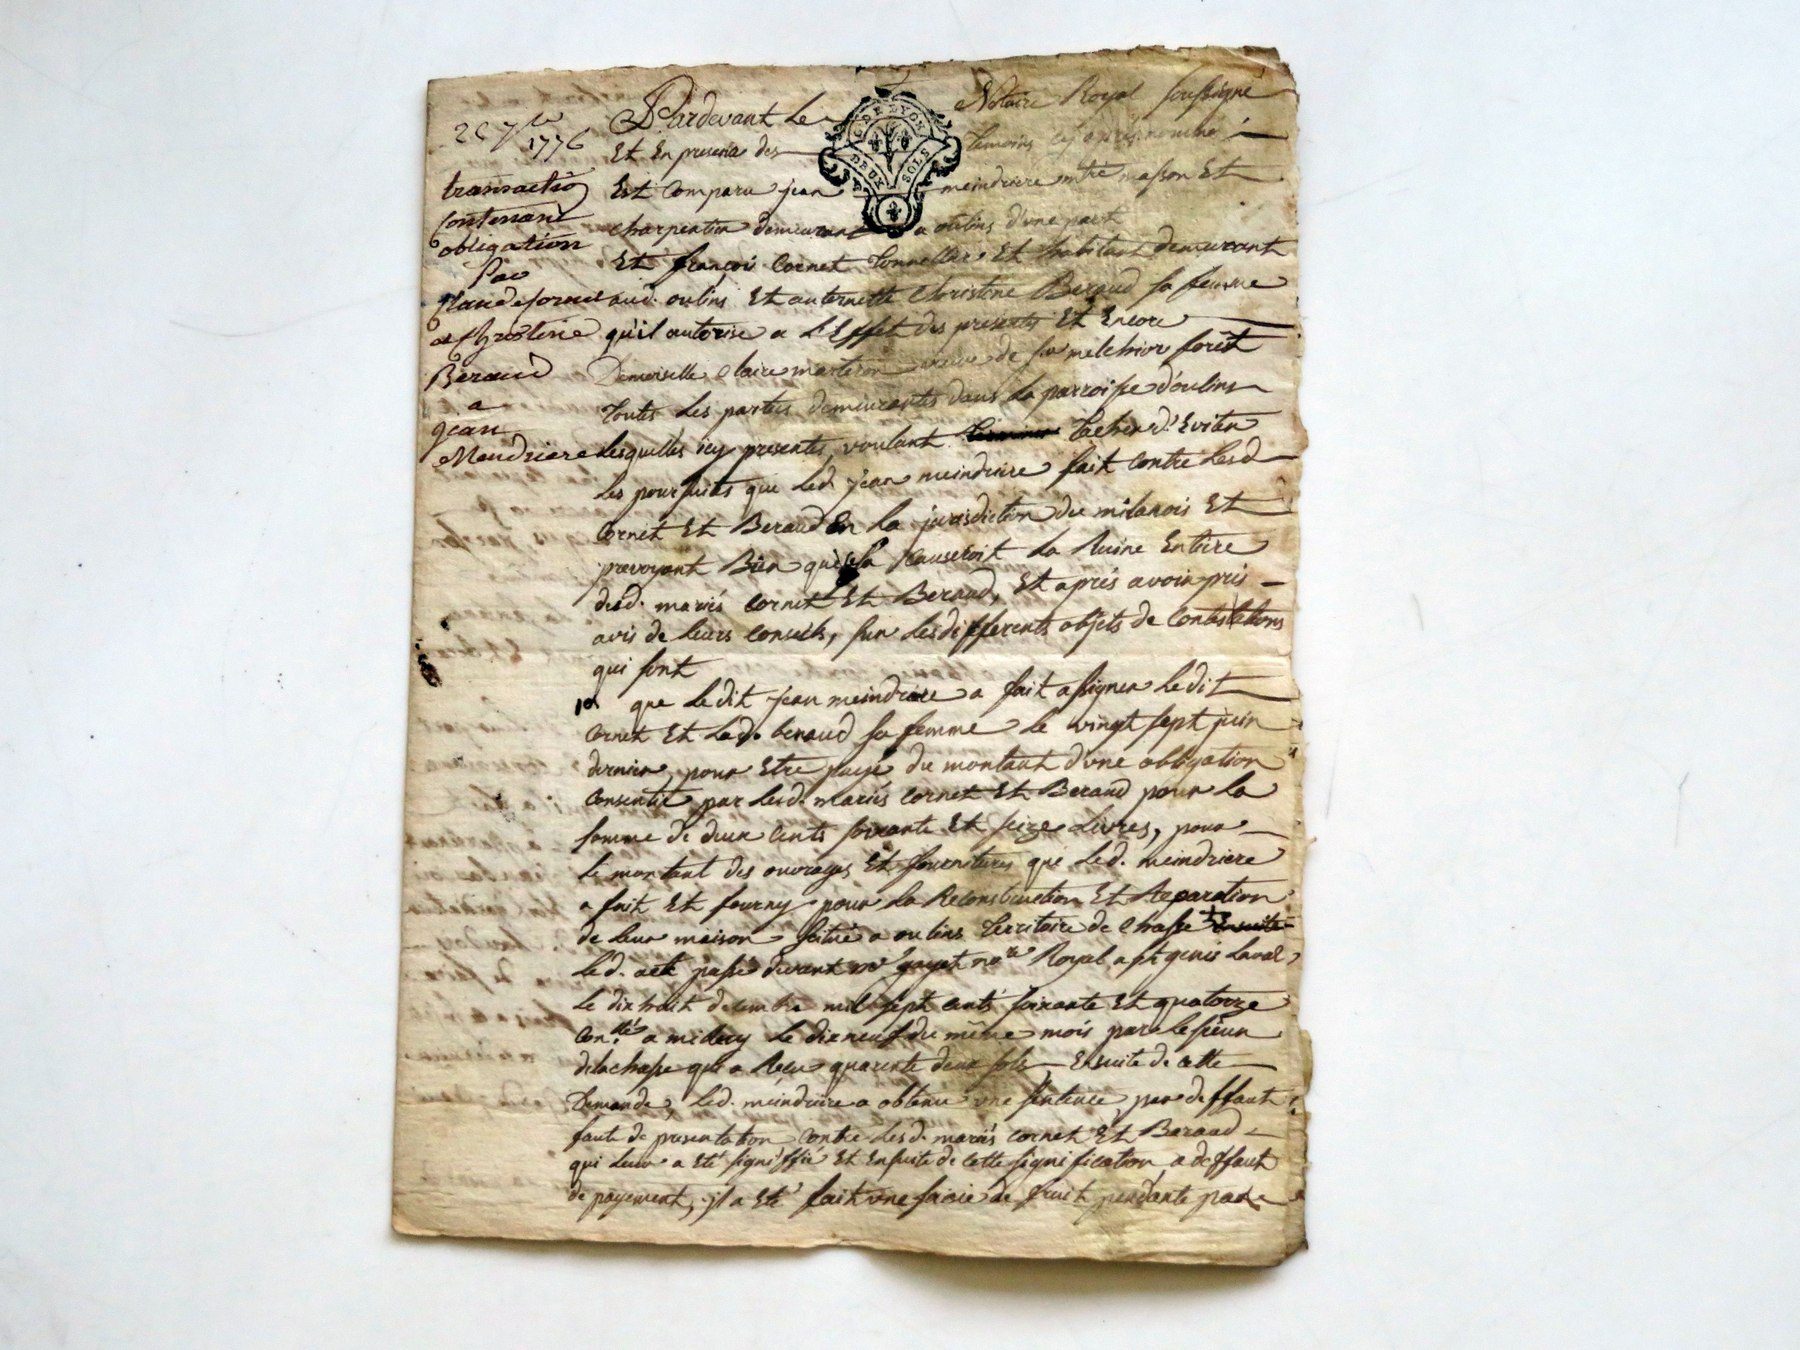 2e 7bre
1776
transactio
contenant
obligation
Par
Claude Cornet
et Chrostine
Béraud
a
jean
Mendriere
G DE LYON
DEUX SOLS
Pardevant Le Notaire Royal soussigné
Et En presence des temoins cy apres nommé
Est Comparu jean meindriere mtre masson Et
charpentier demeurant a oulins d'une part
Et françois Cornet Tonnellier Et habitant demeurant
aud. oulins Et anternette Christine Beraud sa femme
qu'il autorise a L'Effet des presentes Et Encore
Demoiselle Claire marteron veuve de feu melchior forêt
Toutes Les parties demeurantes dans La parroisse d'oulins
Lesquelles icy presentes, voulant Tacher d'Eviter
Les poursuites que Led. jean meindriere fait contre Lesd
Cornet Et Beraud En La jurisdiction du milanois Et
prevoyant Bien que Cela Causeroit La Ruine Entiere
desd. mariés Cornet Et Beraud, Et aprés avoir pris
avis de Leurs Conseils, sur Les differents objets de Contestations
qui sont
1o que Le dit jean meindriere a fait assigner Ledit
Cornet Et Lad. beraud sa femme Le vingt sept juin
dernier, pour Etre payé du montant d'une obligation
Consentie par Lesd. mariés Cornet Et Beraud pour La
somme de deux Cents soixante Et seize Livres, pour
Le montant des ouvrages Et fournitures que Led. meindriere
a fait Et fourny pour La Reconstruction Et Reparation
de Leur maison située a oulins Territoire de Chasse
Led. acte passé devant me gayet nore Royal a st genis Laval
Le dix huit decembre mil sept cents soixante Et quatorze
Con.llé a millery Le dix neuf du même mois par Le sieur
delachasse qui a Reçu quarente deux sols Ensuite de cette
Demande, Led. meindriere a obtenu une sentence par deffaut
faute de presentation Contre Lesd. mariés Cornet Et Beraud
qui Leur a Eté signiffié Et Ensuite de Cette signification a deffaut
de payement, il a Eté fait une saisie de fruit pendante par